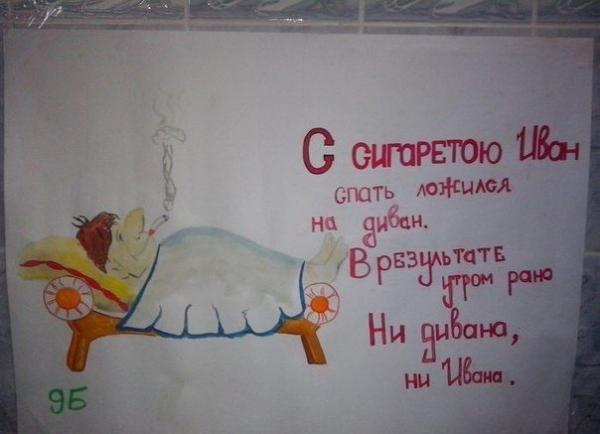 С сигаретою Иван
спать ложился
на диван.
В результате
утром рано
Ни дивана,
ни Ивана.
9Б